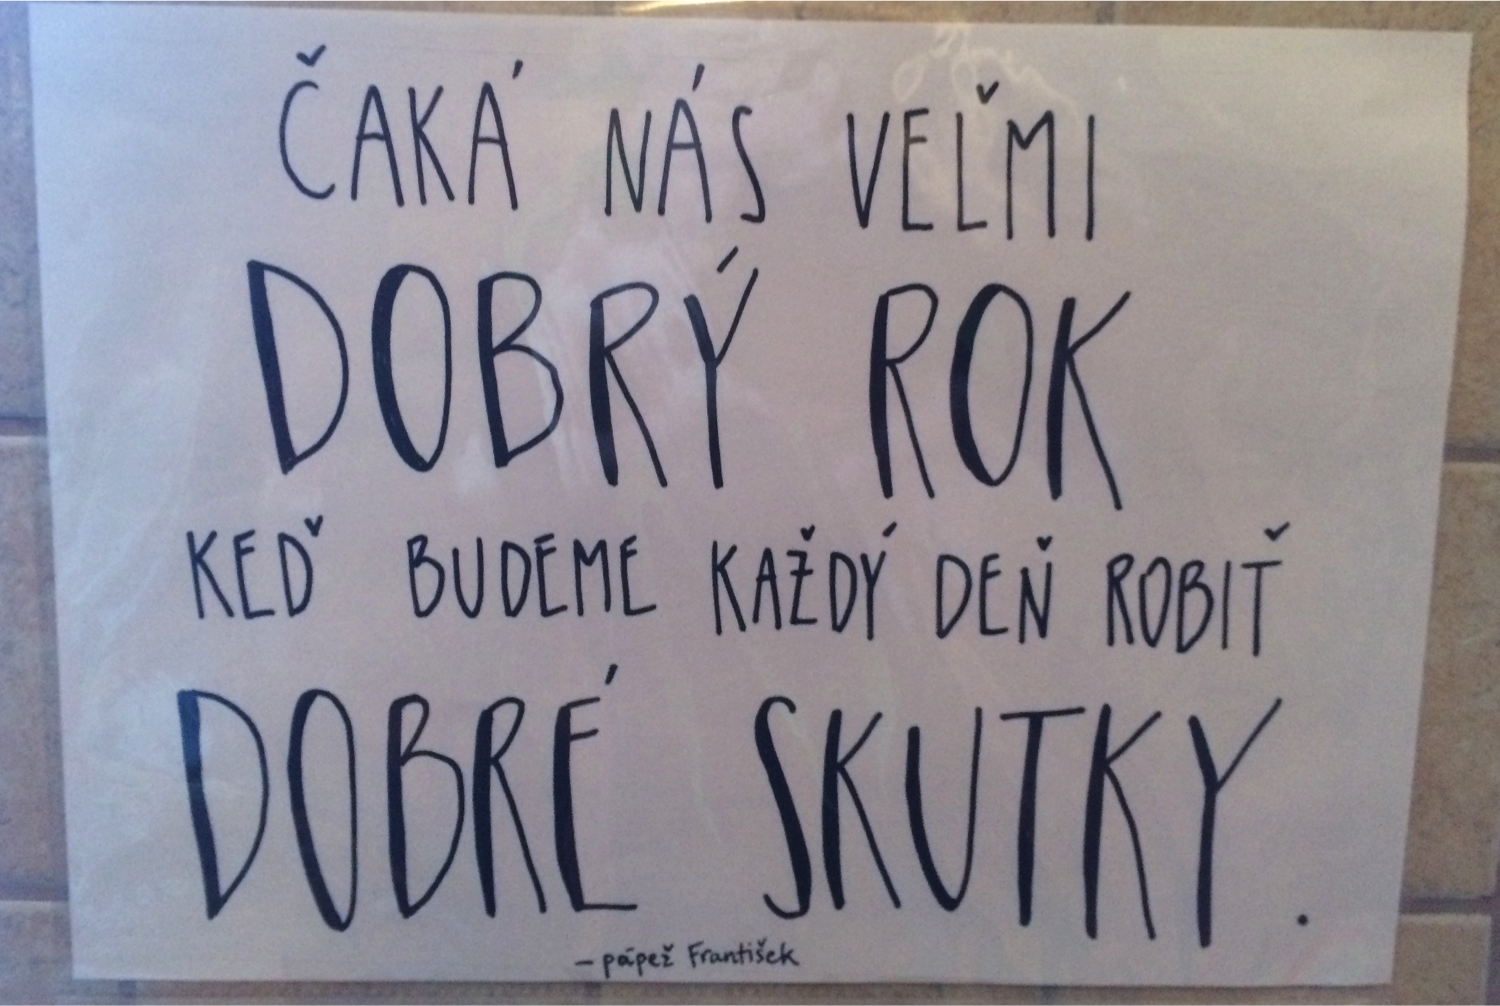 ČAKÁ NÁS VEĽMI
DOBRÝ ROK
KEĎ BUDEME KAŽDÝ DEŇ ROBIŤ
DOBRÉ SKUTKY.
– pápež František